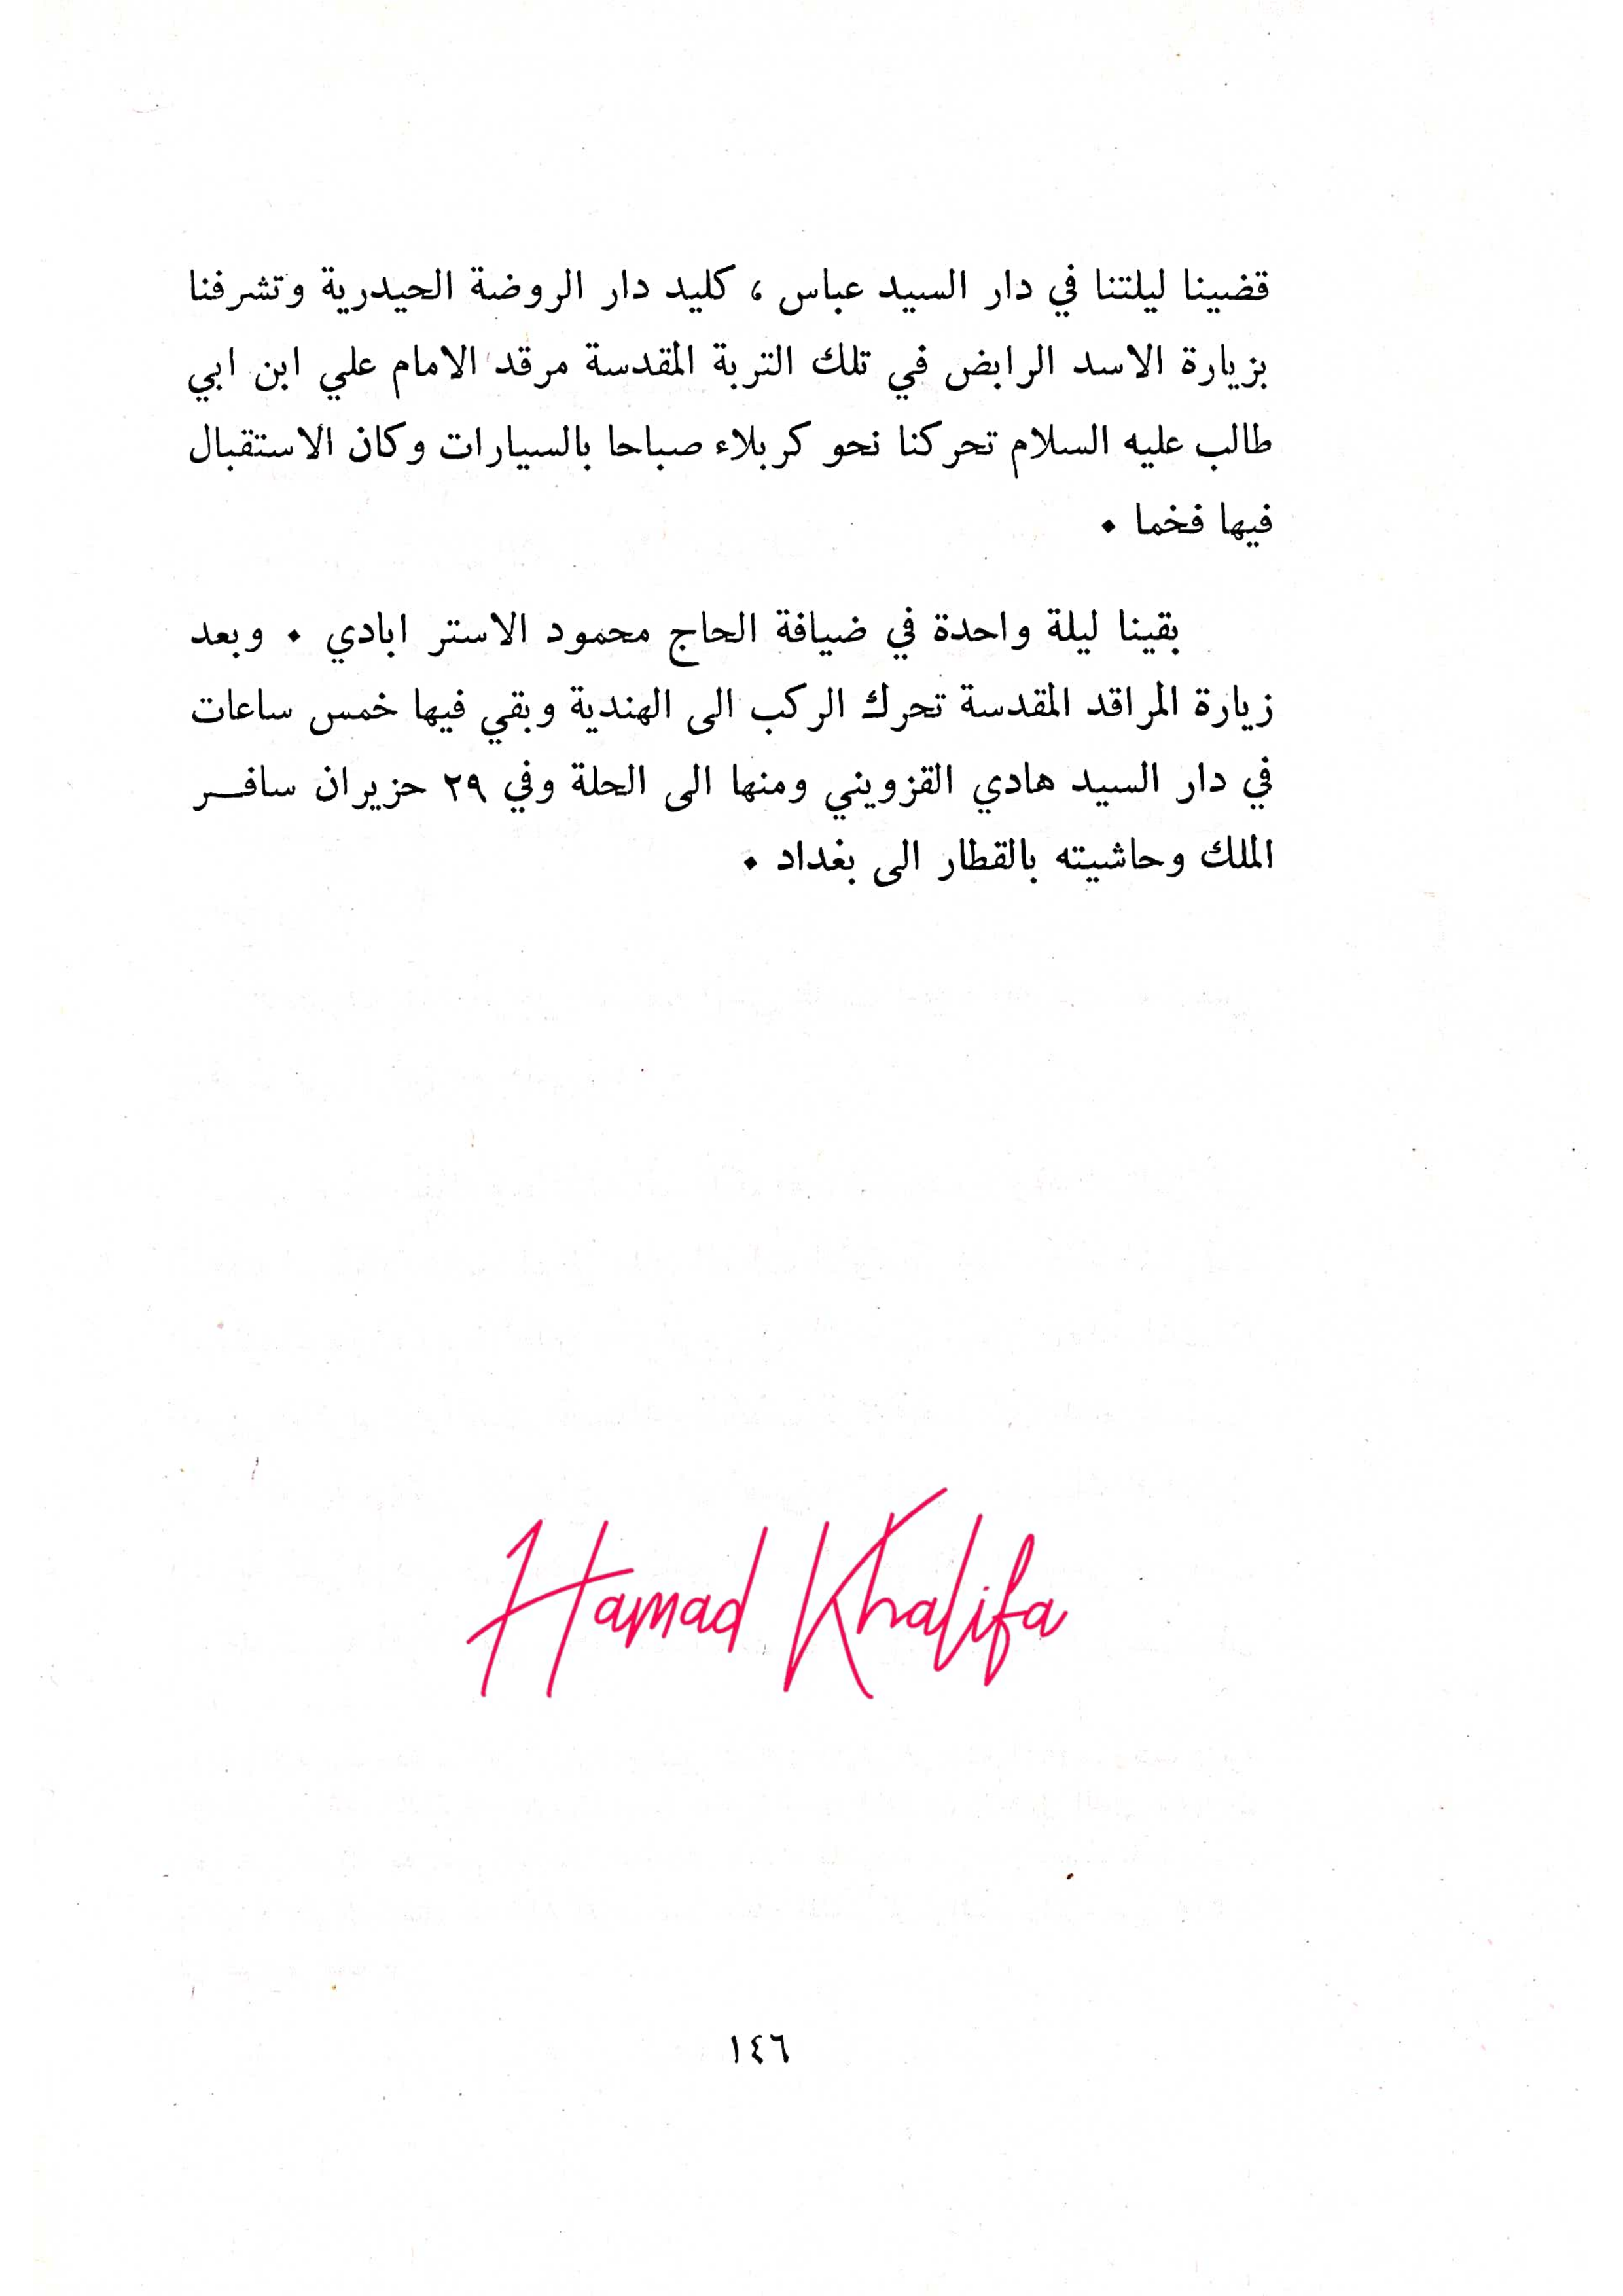 قضينا ليلتنا في دار السيد عباس ، كليد دار الروضة الحيدرية وتشرفنا
بزيارة الاسد الرابض في تلك التربة المقدسة مرقد الامام علي ابن ابي
طالب عليه السلام تحركنا نحو كربلاء صباحا بالسيارات وكان الاستقبال
فيها فخما ٠
بقينا ليلة واحدة في ضيافة الحاج محمود الاستر ابادي ٠ وبعد
زيارة المراقد المقدسة تحرك الركب الى الهندية وبقي فيها خمس ساعات
في دار السيد هادي القزويني ومنها الى الحلة وفي ٢٩ حزيران سافــر
الملك وحاشيته بالقطار الى بغداد ٠
Hamad Khalifa
١٤٦